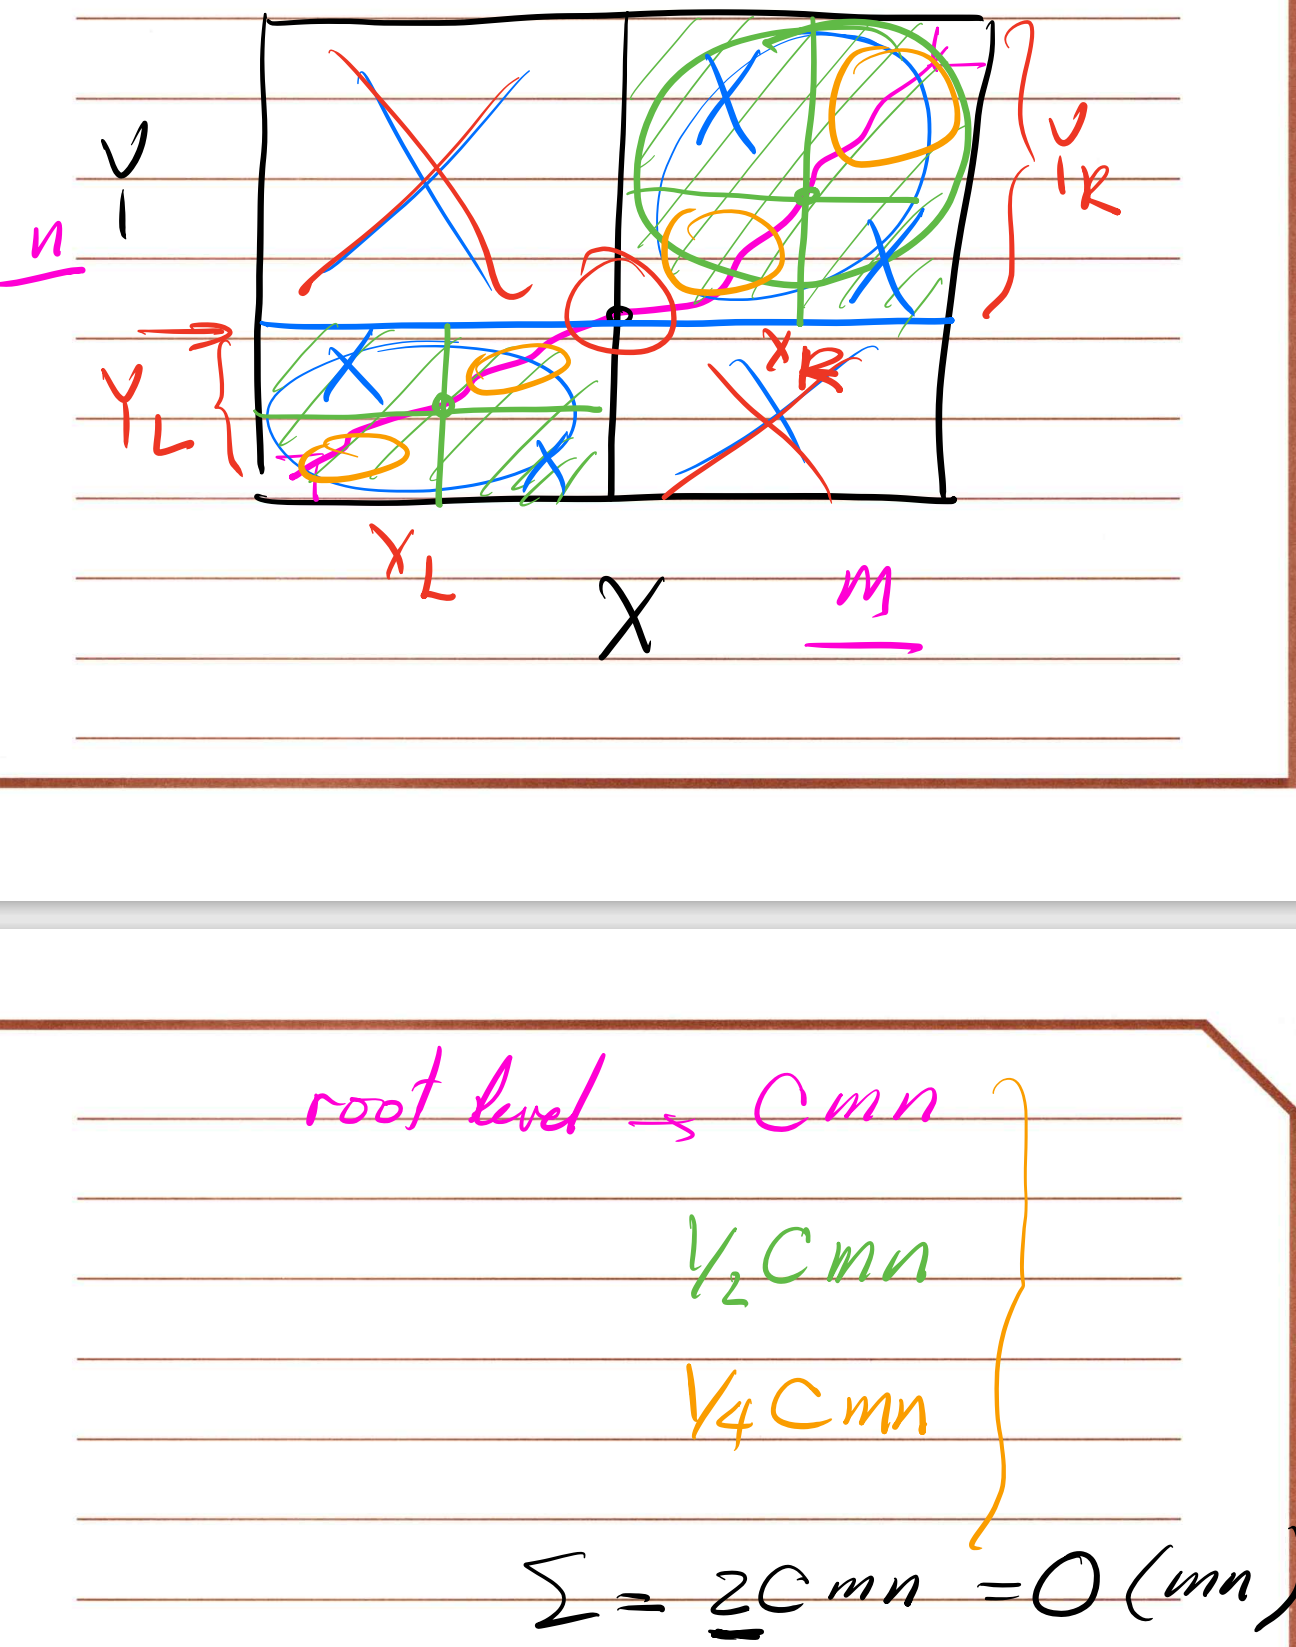 Y
R
Y
n
X
R
Y
L
X
L
X
m
root level → Cmn
1/2 Cmn
1/4 Cmn
Σ = 2Cmn = O(mn)